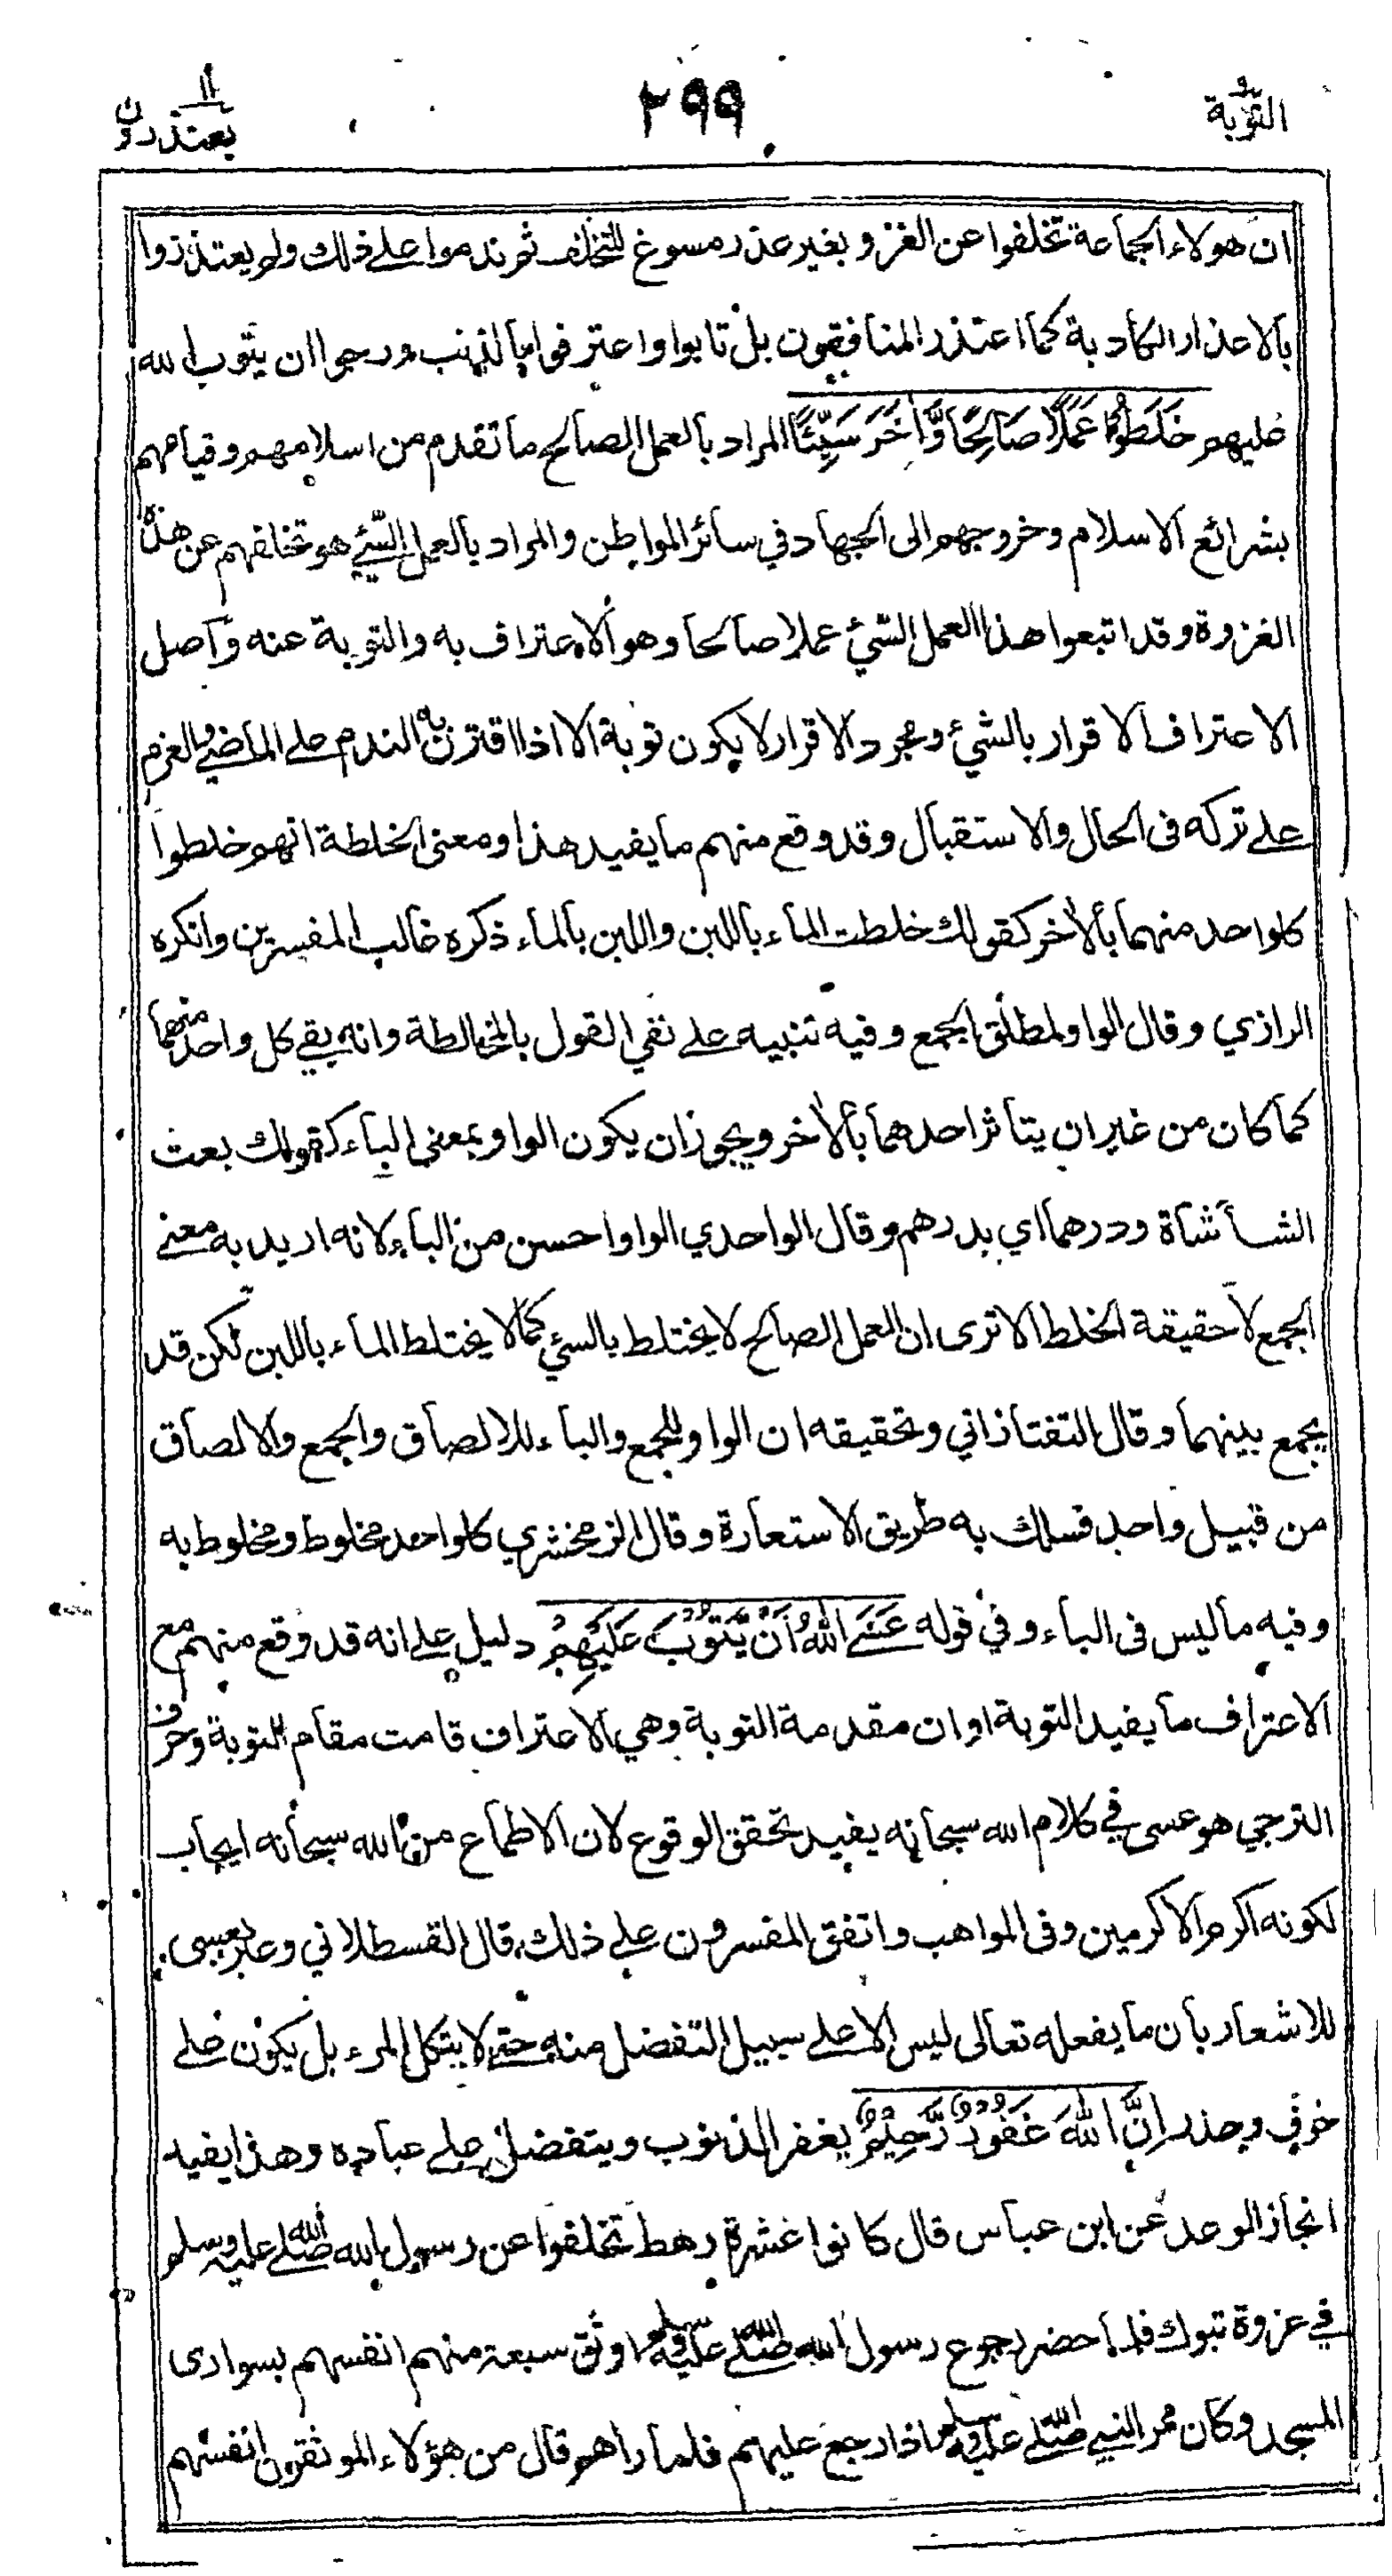 التوبة ٩
٢٩٩
يعتذرون ١١
ان هولاء الجماعة تخلفوا عن الغزو بغير عذر مسوغ للتخلف ثم ندموا على ذلك ولم يعتذروا
بالاعذار الكاذبة كما اعتذر المنافقون بل تابوا واعترفوا بالذنب ورجوا ان يتوب الله
عليهم خَلَطُوا عَمَلًا صَالِحًا وَّاٰخَرَ سَيِّئًا المراد بالعمل الصالح ما تقدم من اسلامهم وقيامهم
بشرائع الاسلام وخروجهم الى الجهاد في سائر المواطن والمراد بالعمل السّيّ هو تخلفهم عن هذه
الغزوة وقد اتبعوا هذا العمل السّيئ عملا صالحا وهو الاعتراف به والتوبة عنه واصل
الاعتراف الاقرار بالشيئ ومجرد الاقرار لا يكون توبة الا اذا اقترن به الندم على الماضي والعزم
على تركه فى الحال والاستقبال وقد وقع منهم ما يفيد هذا ومعنى الخلطة انهم خلطوا
كلواحد منهما بالاخر كقولك خلطت الماء باللبن واللبن بالماء ذكره غالب المفسرين وانكره
الرازي وقال الواو لمطلق الجمع وفيه تنبيه على نفي القول بالمخالطة وانه بقي كل واحد منهما
كما كان من غير ان يتأثر احدهما بالاخر ويجوز ان يكون الواو بمعنى الباء كقولك بعت
الشا شاة ودرهما اي بدرهم وقال الواحدي الواو احسن من الباء لانه اريد به معنى
الجمع لا حقيقة الخلط الا ترى ان العمل الصالح لا يختلط بالسيئ كما لا يختلط الماء باللبن لكن قد
يجمع بينهما وقال التفتازاني وتحقيقه ان الواو للجمع والباء للالصاق والجمع والالصاق
من قبيل واحد فسلك به طريق الاستعارة وقال الزمخشري كلواحد مخلوط ومخلوط به
وفيه ما ليس فى الباء وفي قوله عَسَى اللّٰهُ اَنْ يَّتُوْبَ عَلَيْهِمْ دليل على انه قد وقع منهم مع
الاعتراف ما يفيد التوبة او ان مقدمة التوبة وهي الاعتراف قامت مقام التوبة وحرف
الترجي هو عسى في كلام الله سبحانه يفيد تحقق الوقوع لان الاطماع من الله سبحانه ايجاب
لكونه اكرم الاكرمين وفى المواهب واتفق المفسرون على ذلك قال القسطلاني وعبر بعسى
للاشعار بان ما يفعله تعالى ليس الا على سبيل التفضل منه حتى لا يتكل المرء بل يكون على
خوف وحذر اِنَّ اللّٰهَ غَفُوْرٌ رَّحِيْمٌ يغفر الذنوب ويتفضل على عباده وهذا يفيه
انجاز الوعد عن ابن عباس قال كانوا عشرة رهط تخلفوا عن رسول الله صلى الله عليه وسلم
في غزوة تبوك فلما حضر رجوع رسول الله صلى الله عليه وسلم اوثق سبعة منهم انفسهم بسوارى
المسجد وكان ممر النبي صلى الله عليه وسلم اذا رجع عليهم فلما راهم قال من هؤلاء الموثقون انفسهم